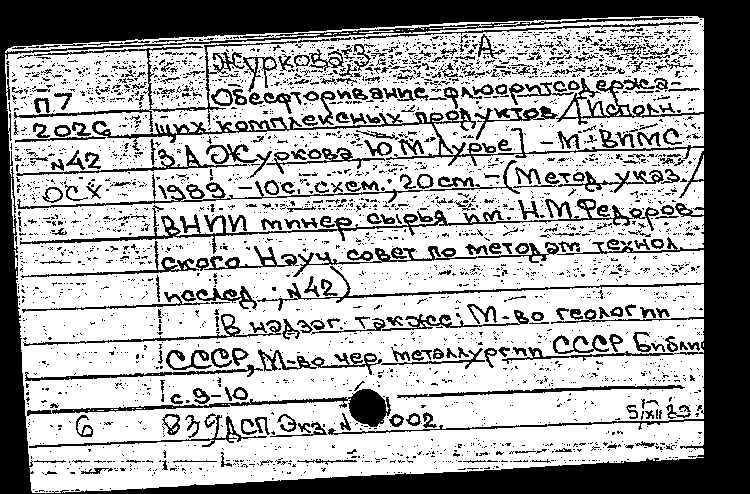 Журкова З А
П7 Обесфторивание флюоритсодержа-
2026 щих комплексных продуктов / [Исполн.
N42 З.А.Журкова, Ю.М.Лурье] – М.: ВИМС,
ОСХ 1989. – 10с.: схем.; 20см. – (Метод. указ. /
ВНИИ минер. сырья им. Н.М.Федоров-
ского. Науч. совет по методам технол.
исслед.; N42)
В надзаг. также: М-во геологии
СССР, М-во чер. металлургии СССР. Библи
с.9-10.
6 839 ДСП. Экз. N 002.